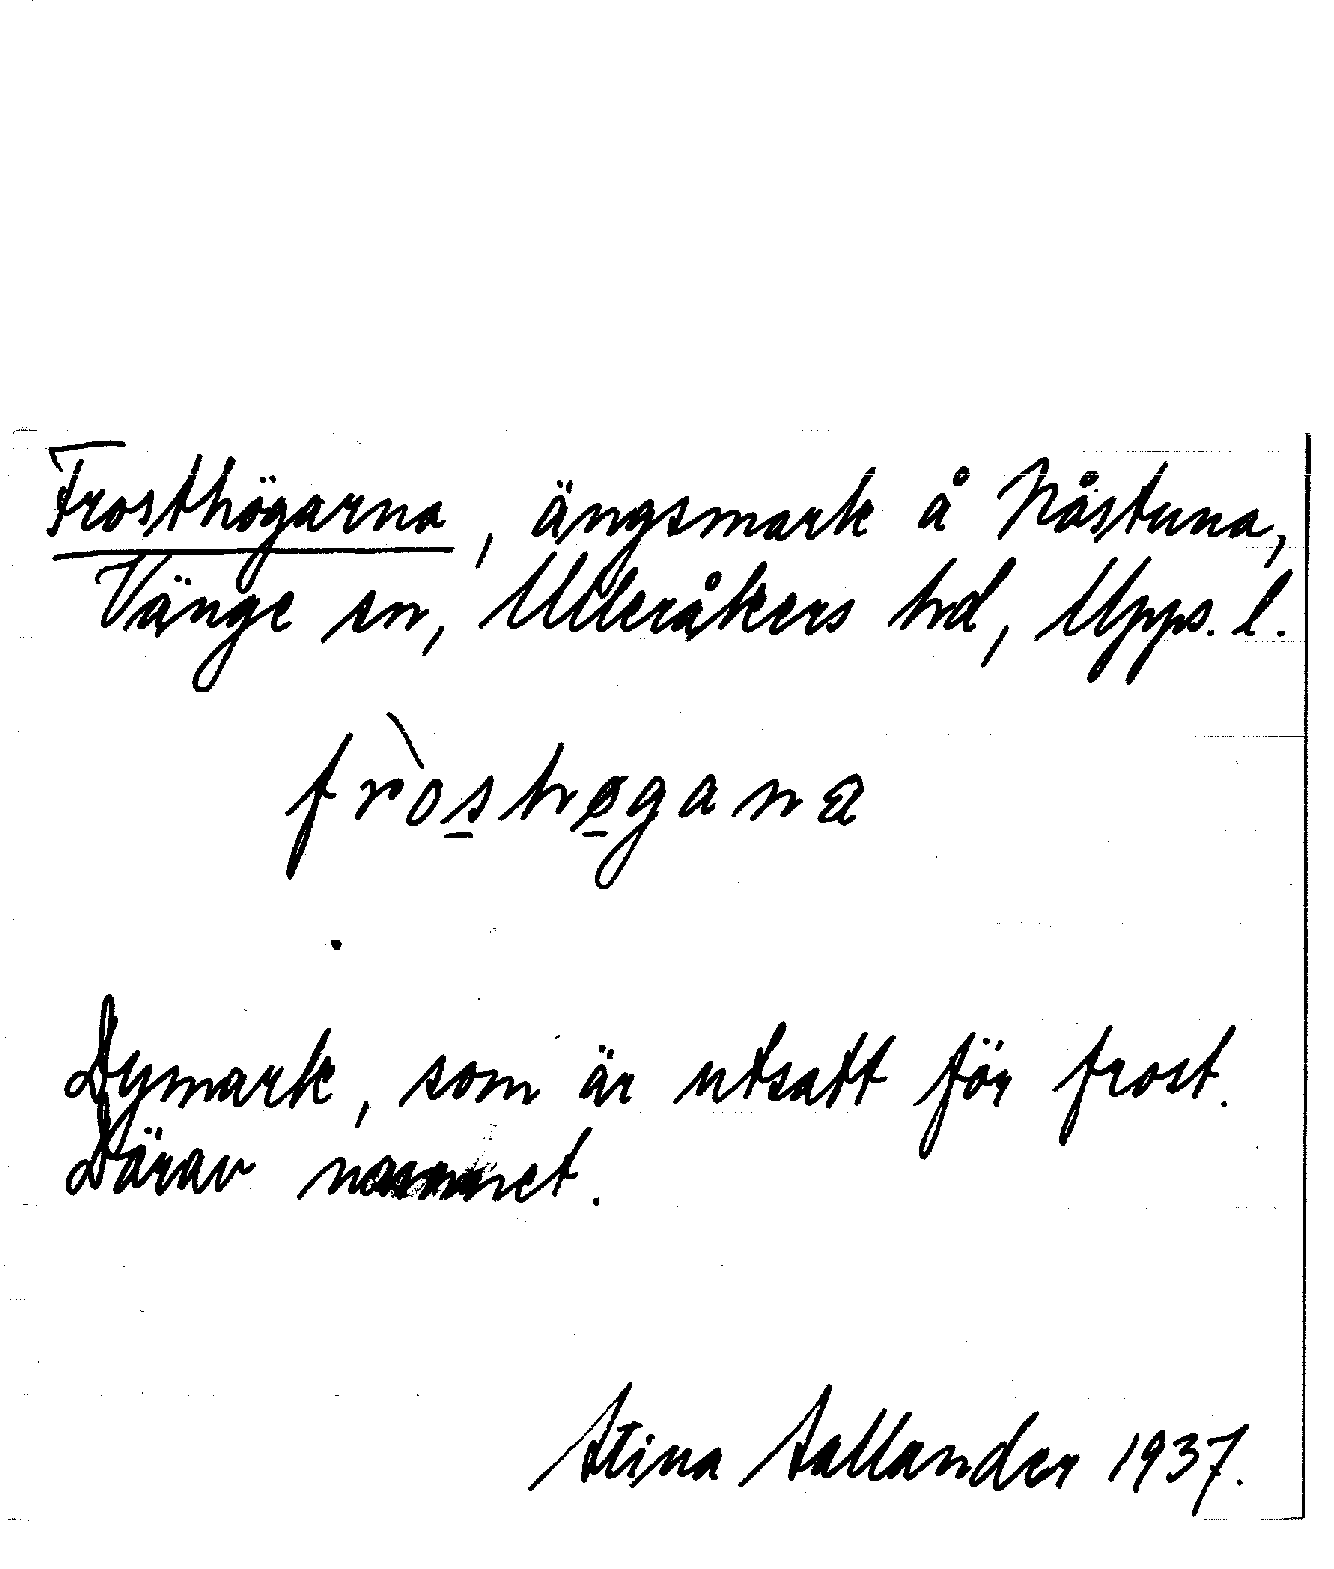 Frosthögarna, ängsmark å Nåstuna,
Vänge sn, Ulleråkers hd, Upps. l.
fròshøgana
Dymark, som är utsatt för frost.
Därav namnet.
Stina Sallander 1937.